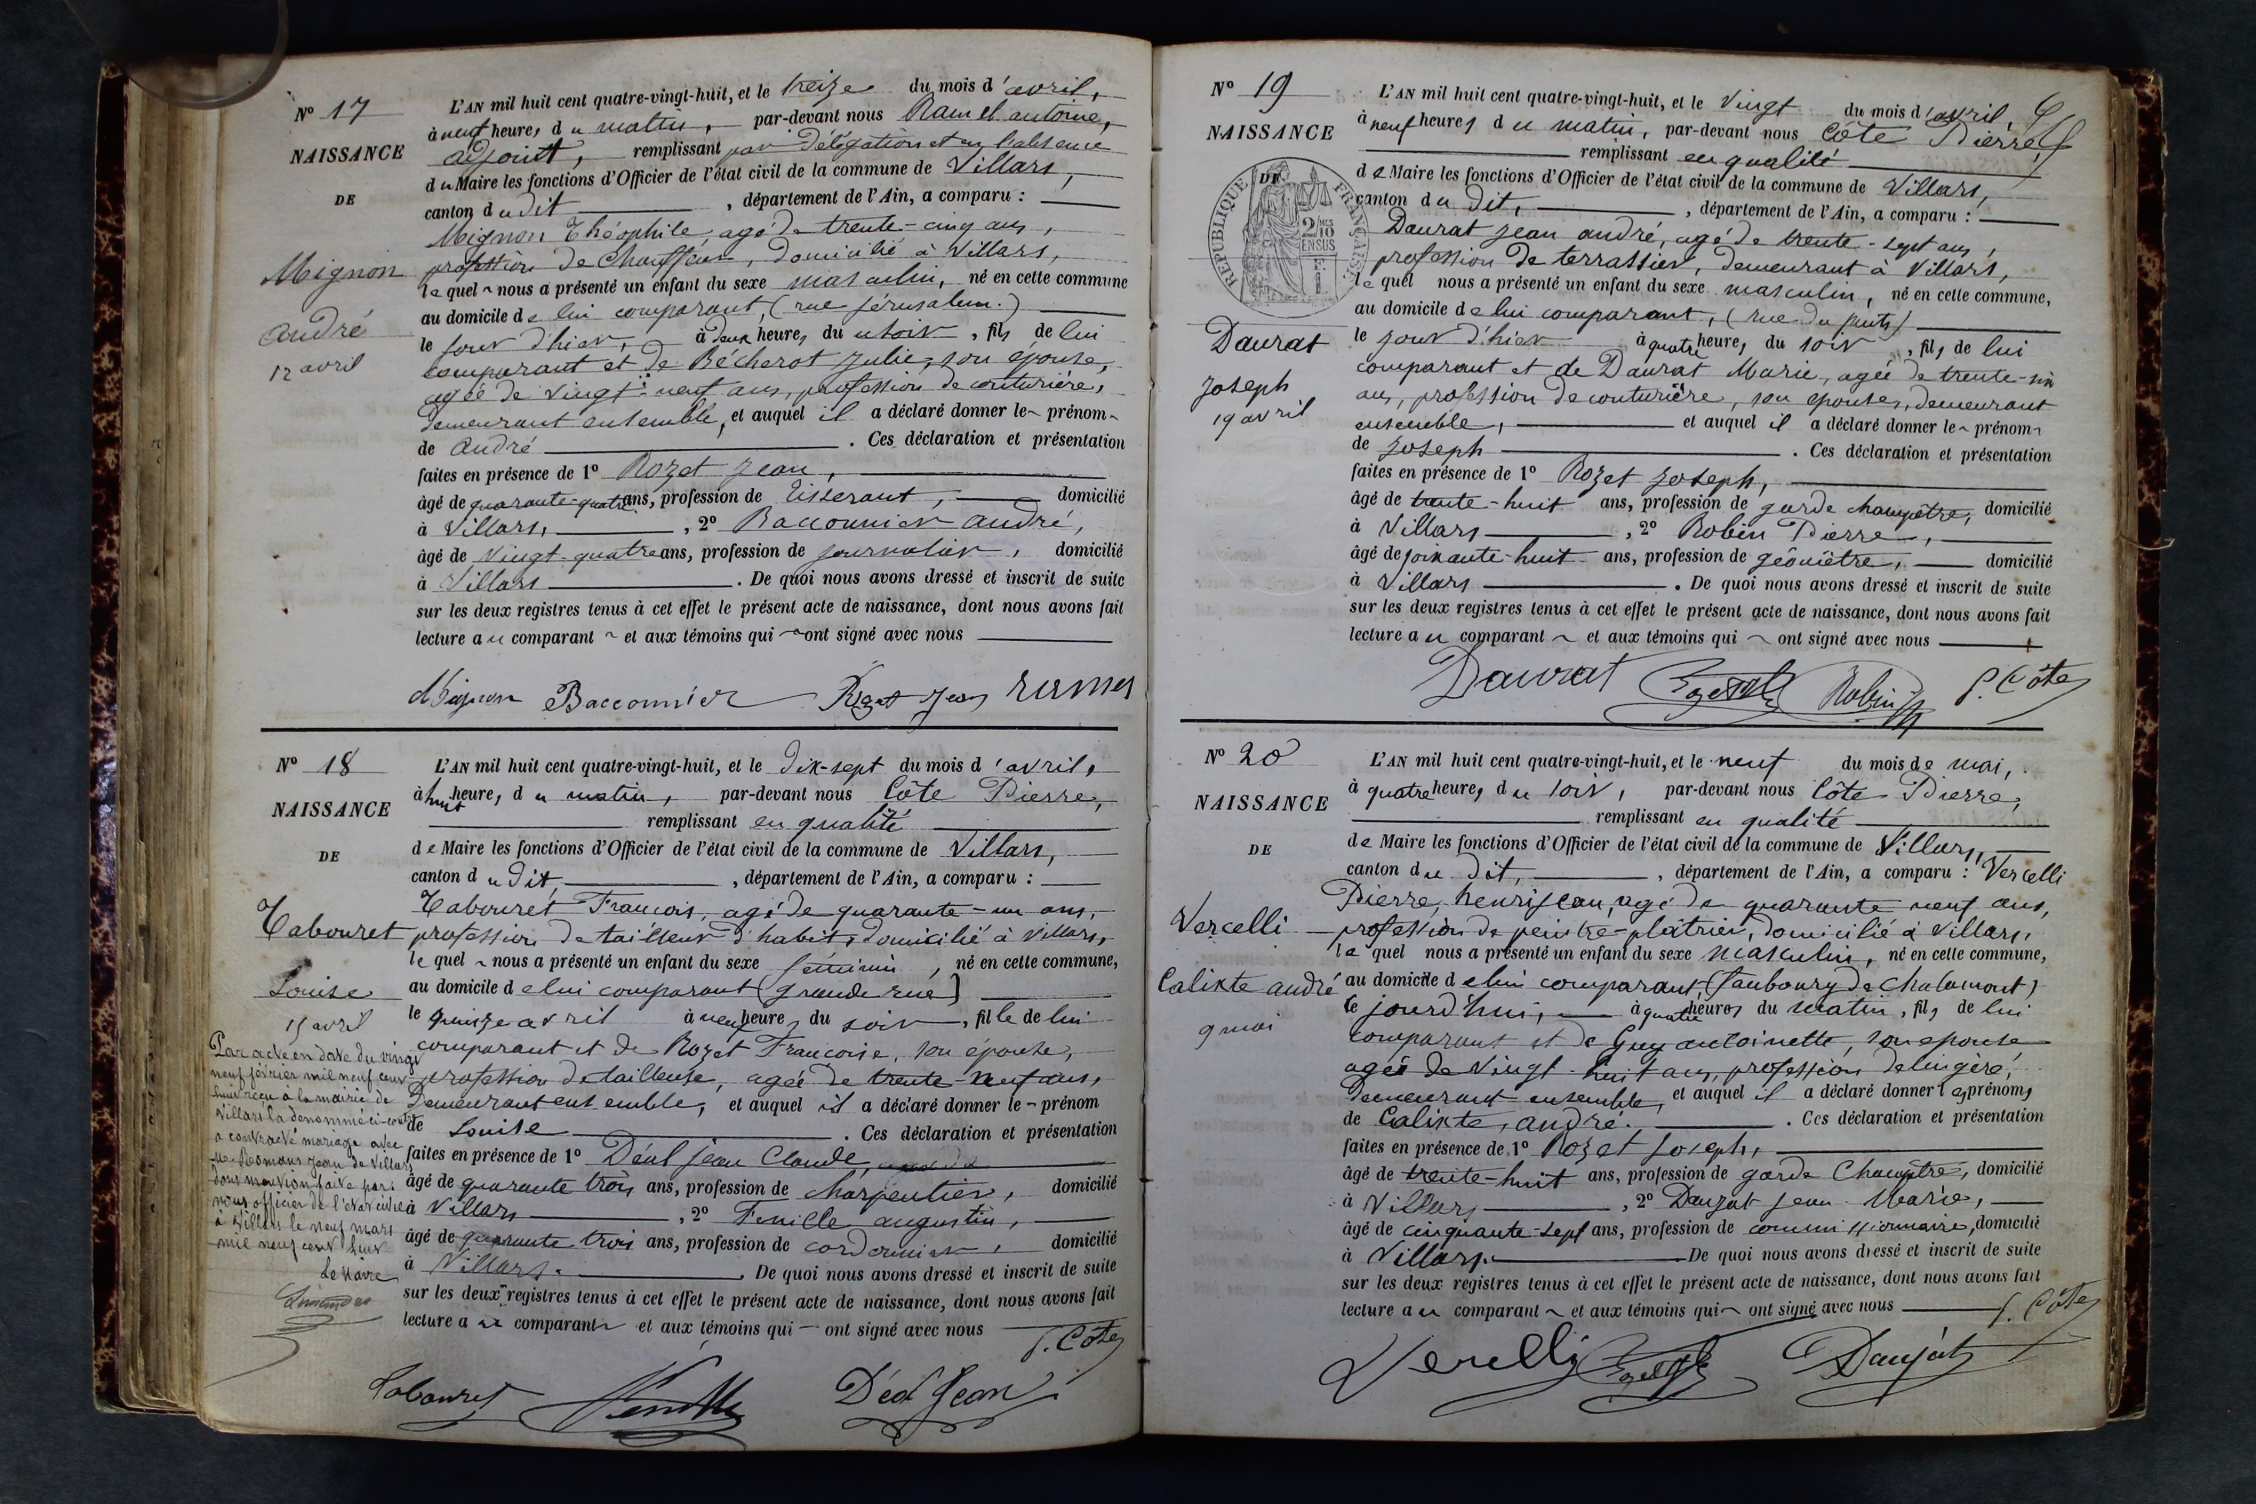 N° 17
NAISSANCE
DE
Mignon
André
12 avril
L'AN mil huit cent quatre-vingt-huit, et le treize du mois d'avril,
à neuf heures du matin, par-devant nous Ramel antoine,
adjoint, remplissant par délégation et en l'absence
du Maire les fonctions d'Officier de l'état civil de la commune de Villars,
canton dudit, département de l'Ain, a comparu :
Mignon Théophile, agé de trente-cinq ans,
profession de Chauffeur, domicilié à Villars,
lequel nous a présenté un enfant du sexe masculin, né en cette commune
au domicile de lui comparant, (rue Jérusalem.)
le jour d'hier, à deux heures du soir, fils de lui
comparant et de Bécherot Julie, son épouse,
agée de vingt-neuf ans, profession de couturière,
demeurant ensemble, et auquel il a déclaré donner le prénom
de André. Ces déclaration et présentation
faites en présence de 1° Rozet Jean,
âgé de quarante-quatre ans, profession de tisserant, domicilié
à Villars, 2° Bacconnier André,
âgé de vingt-quatre ans, profession de journalier, domicilié
à Villars. De quoi nous avons dressé et inscrit de suite
sur les deux registres tenus à cet effet le présent acte de naissance, dont nous avons fait
lecture au comparant et aux témoins qui ont signé avec nous
Mignon Bacconnier Rozet Jean Ramel
N° 18
NAISSANCE
DE
Tabouret
Louise
15 avril
Par acte en date du vingt
neuf février mil neuf cent
huit reçu à la mairie de
Villars la dénommé ci-contre
a contracté mariage avec
Romans Jean de Villars
Dont mention faite par
nous officier de l'état civil
à Villars le neuf mars
mil neuf cent huit
Le Maire
L'AN mil huit cent quatre-vingt-huit, et le dix-sept du mois d'avril,
à huit heures du matin, par-devant nous Côte Pierre,
remplissant en qualité
de Maire les fonctions d'Officier de l'état civil de la commune de Villars,
canton dudit, département de l'Ain, a comparu :
Tabouret François, agé de quarante-un ans,
profession de tailleur d'habits, domicilié à Villars,
lequel nous a présenté un enfant du sexe féminin, né en cette commune,
au domicile de lui comparant (grande rue)
le quinze avril à neuf heures du soir, fille de lui
comparant et de Rozet Francoise, son épouse,
profession de tailleuse, agée de trente-neuf ans,
demeurant ensemble, et auquel il a déclaré donner le prénom
de Louise. Ces déclaration et présentation
faites en présence de 1° Déal Jean Claude,
âgé de quarante trois ans, profession de charpentier, domicilié
à Villars, 2° Fenille augustin,
âgé de quarante trois ans, profession de cordonnier, domicilié
à Villars. De quoi nous avons dressé et inscrit de suite
sur les deux registres tenus à cet effet le présent acte de naissance, dont nous avons fait
lecture au comparant et aux témoins qui ont signé avec nous
P. Côte
Tabouret Fenille Déal Jean
N° 19
NAISSANCE
DE
RÉPUBLIQUE FRANÇAISE
2/10
EN SUS
Daurat
Joseph
19 avril
L'AN mil huit cent quatre-vingt-huit, et le vingt du mois d'avril,
à neuf heures du matin, par-devant nous Côte Pierre,
remplissant en qualité
de Maire les fonctions d'Officier de l'état civil de la commune de Villars,
canton du dit, département de l'Ain, a comparu :
Daurat Jean andré, agé de trente-sept ans,
profession de terrassier, demeurant à Villars,
le quel nous a présenté un enfant du sexe masculin, né en cette commune,
au domicile de lui comparant, (rue du puits)
le jour d'hier à quatre heures du soir, fils de lui
comparant et de Daurat Marie, agée de trente-six
ans, profession de couturière, son epouse, demeurant
ensemble, et auquel il a déclaré donner le prénom
de Joseph. Ces déclaration et présentation
faites en présence de 1° Rozet Joseph,
âgé de trente-huit ans, profession de garde champêtre, domicilié
à Villars, 2° Robin Pierre,
âgé de soixante-huit ans, profession de géomètre, domicilié
à Villars. De quoi nous avons dressé et inscrit de suite
sur les deux registres tenus à cet effet le présent acte de naissance, dont nous avons fait
lecture au comparant et aux témoins qui ont signé avec nous
Daurat Rozet Robin P. Côte
N° 20
NAISSANCE
DE
Vercelli
Calixte andré
9 mai
L'AN mil huit cent quatre-vingt-huit, et le neuf du mois de mai,
à quatre heures du soir, par-devant nous Côte Pierre,
remplissant en qualité
de Maire les fonctions d'Officier de l'état civil de la commune de Villars,
canton du dit, département de l'Ain, a comparu : Vercelli
Pierre, henri, Jean, agé de quarante neuf ans,
profession de peintre-plâtrier, domicilié à Villars,
lequel nous a présenté un enfant du sexe masculin, né en cette commune,
au domicile de lui comparant, (faubourg de Chalamont)
le jourd'hui, à quatre heures du matin, fils de lui
comparant et de Guy antoinette, son epouse
agée de vingt-huit ans, profession de lingère,
demeurant ensemble, et auquel il a déclaré donner les prénoms
de Calixte, andré. Ces déclaration et présentation
faites en présence de 1° Rozet Joseph,
âgé de trente-huit ans, profession de garde Champêtre, domicilié
à Villars, 2° Daujat Jean Marie,
âgé de cinquante-sept ans, profession de commissionnaire, domicilié
à Villars. De quoi nous avons dressé et inscrit de suite
sur les deux registres tenus à cet effet le présent acte de naissance, dont nous avons fait
lecture au comparant et aux témoins qui ont signé avec nous
P. Côte
Vercelli Rozet Daujat